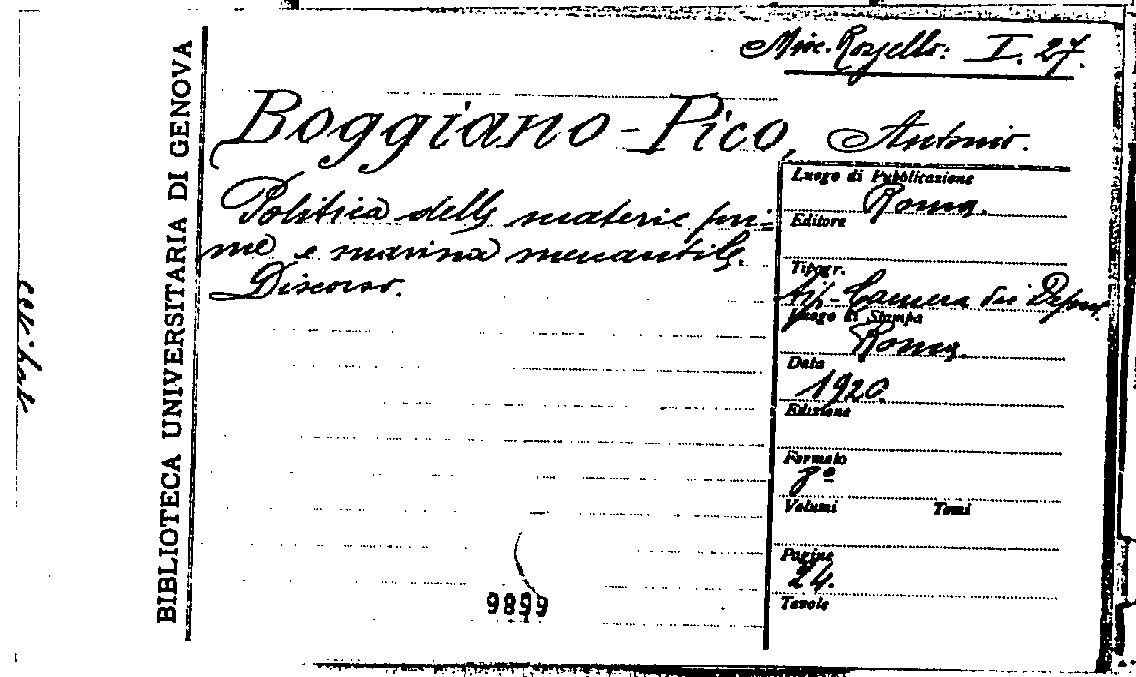 BIBLIOTECA UNIVERSITARIA DI GENOVA
Misc. Rossello: I. 27.
Boggiano-Pico, Antonio.
Politica delle materie pri=
me e marina mercantile.
Discorso.
Luogo di Pubblicazione
Roma.
Editore
Tipogr.
Tip. Camera dei Deput.
Luogo di Stampa
Roma.
Data
1920.
Edizione
Formato
8º
Volumi Tomi
Pagine
24.
Tavole
9899